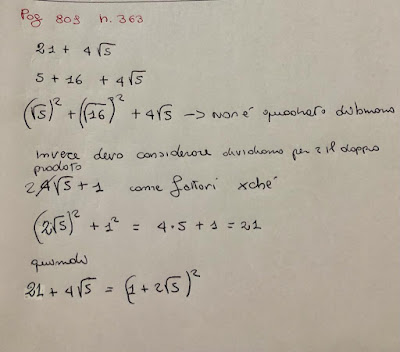 Pag 803 n. 363
21 + 4√5
5 + 16 + 4√5
(√5)² + (√16)² + 4√5 → Non é quadrato di binomio
Invece devo considerare dividiamo per 2 il doppio
prodotto
2 4√5 + 1 come fattori xché
(2√5)² + 1² = 4·5 + 1 = 21
quindi
21 + 4√5 = (1 + 2√5)²